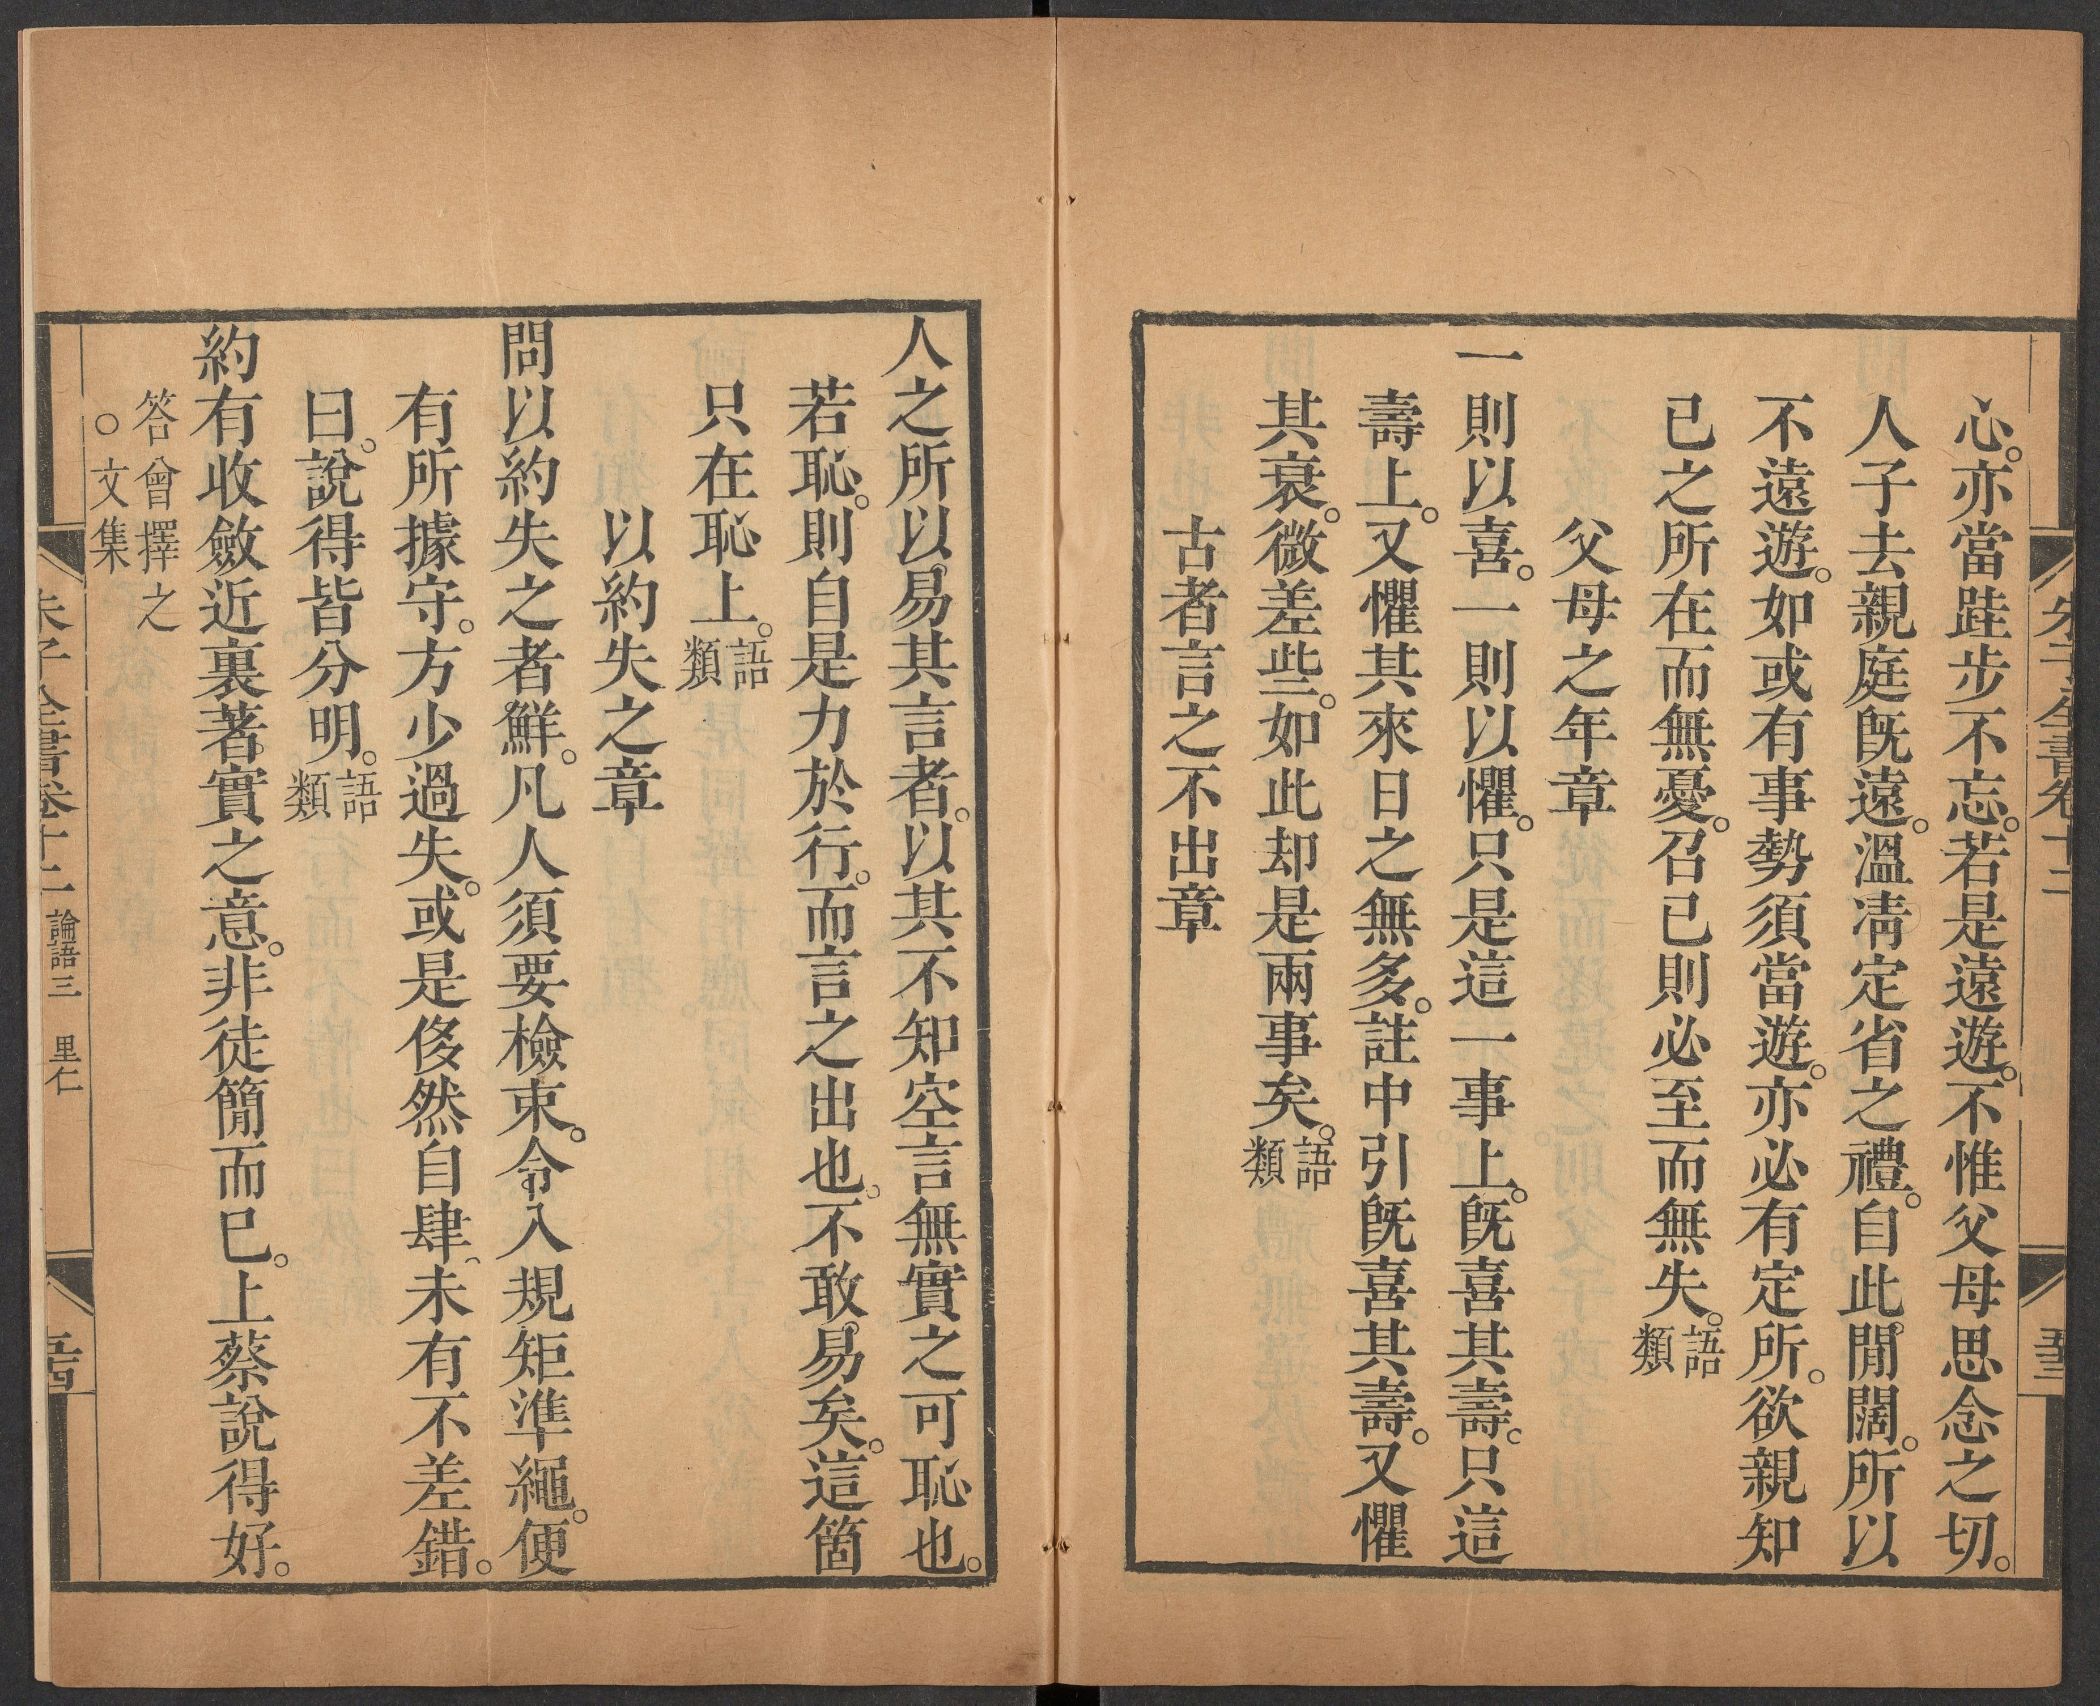 朱子全書卷十二
五十三
心。亦當跬步不忘。若是遠遊。不惟父母思念之切。
人子去親庭旣遠。溫凊定省之禮。自此閒闊。所以
不遠遊。如或有事勢須當遊。亦必有定所。欲親知
已之所在而無憂。召已則必至而無失。語類
父母之年章
一則以喜。一則以懼。只是這一事上。旣喜其壽。只這
壽上。又懼其來日之無多。註中引旣喜其壽。又懼
其衰。微差些。如此却是兩事矣。語類
古者言之不出章
人之所以易其言者。以其不知空言無實之可恥也。
若恥。則自是力於行。而言之出也。不敢易矣。這箇
只在恥上。語類
以約失之章
問以約失之者鮮。凡人須要檢束。令入規矩準繩。便
有所據守。方少過失。或是侈然自肆。未有不差錯。
曰。說得皆分明。語類
約有收斂近裏著實之意。非徒簡而已。上蔡說得好。
答曾擇之
○文集
朱子全書卷十二 論語三 里仁
五十四